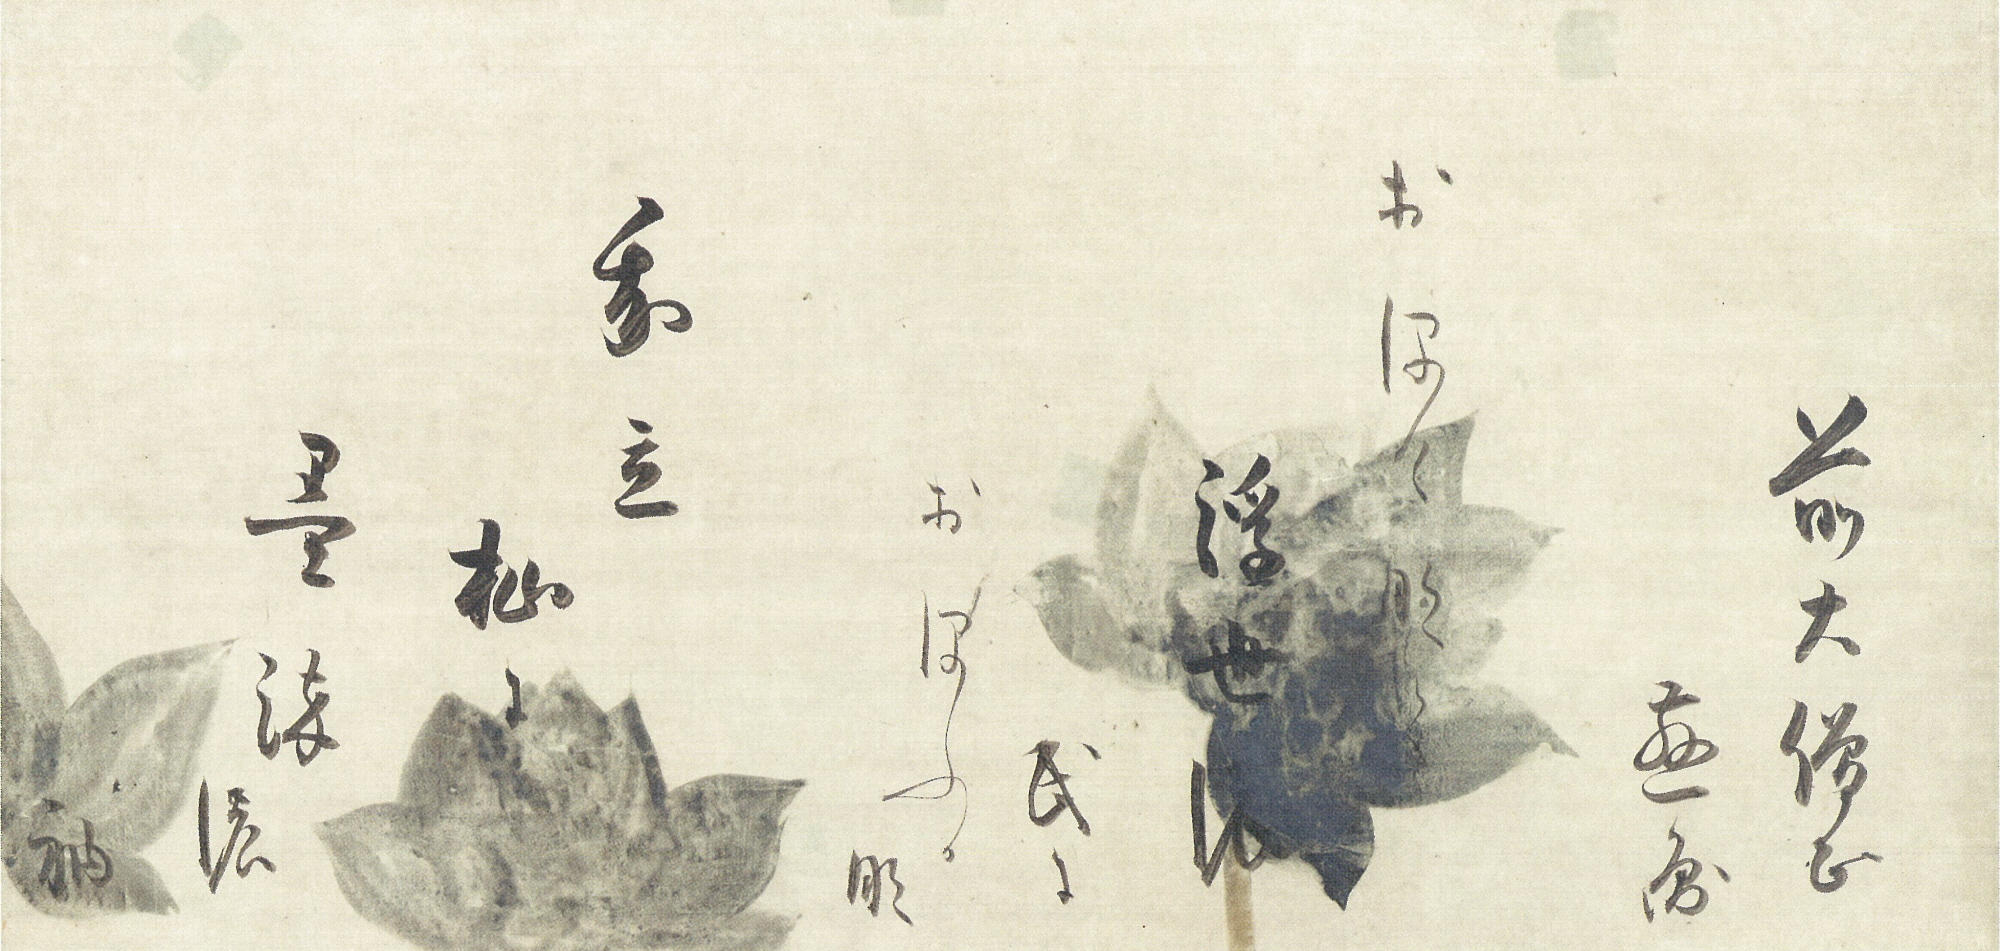 前大僧正
慈圓
おほけ那く
浮世能
民に
おほふか
那
我立
杣に
墨染
濃
袖